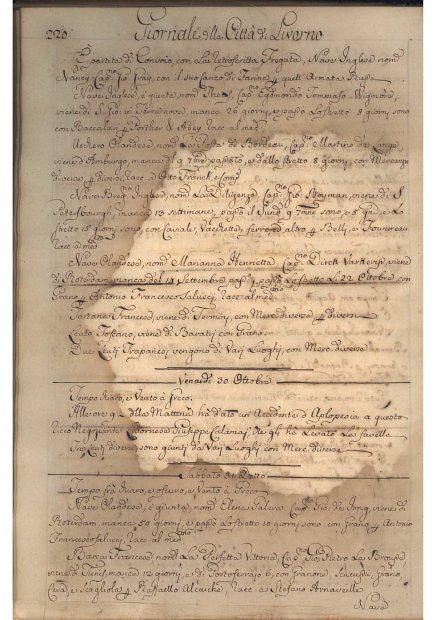 220 Giornale della Città di Livorno
È partita di Convoia con La retroscritta Fregata, Nave Inglese nom.
Nancy Cap.no Gio: Fray, con il suo Carico di Farina
Nave Inglese, è giunta, nom. Cap.no Edmondo Tommaso
viene di S. Gio: in Terranova, manca 26 giorni, e passò Lo stretto 8 giorni sono
con Baccalari, p. Porther & Adey racc. al med.
Uchero Olandese, nom. La Posta di Bordeau, Cap.no Martino de Lange,
viene d'Amburgo, manca passato, e dallo stretto 8 giorni, con Mercanzie
diverse, p. diversi, racc. a Otto Franck, e Comp.
Nave Brig.no Inglese, nom. La Diligenza, Cap.no Gio: Bayman, viene di S.
Pietersbourgh, manca 13 settimane, passò il Sund 9 sono, e Lo
stretto 15 giorni sono, con Caviale, Vacchette, ferro, ed altro p. Belli, e Fouvereau
racc. al med.
Nave Olandese, nom. Marianna Henrietta Cap.no Dirck Varkeviss, viene
di Rotterdam, manca del 14 Settembre pass., e passò Lo stretto Li 22 Ottobre con
Grano p. Antonio Francesco Salucci, racc. al med.
Tartana Francese, viene di Termini, con Merc. diverse p. diversi
Leuto Toscano, viene di Baratti con Grano.
Due Leuti Trapanesi vengono di Varj Luoghi, con Merc. diverse
Venerdì 30 Ottobre
Tempo chiaro, e Vento à Greco.
Alle ore 9 della Mattina ha dato un Accidente d'Aplopesia a questo
ricco Negoziante Livornese Giuseppe Calamai che gli ha Levato La favella
Tre Leuti diversi sono giunti da Varj Luoghi con Merc. diverse
Sabbato 31 Detto
Tempo frà chiaro, e oscuro, e Vento à Greco
Nave Olandese, è giunta, nom. Elena Cap.no Gio: de Jong, viene di
Rotterdam, manca 50 giorni, e passò Lo stretto 10 giorni sono con grano p. Antonio
Francesco Salucci, racc. al med.
Barca Francese nom. La Perfetta Vittoria, Cap.no Gio: Pietro La Brousse,
viene di Tunis, manca 12 giorni, e di Portoferraio 6, con granone, grano,
Cera, e Scagliola p. Raffaello Alcaiche, racc. a Stefano Arnavelle
Nave